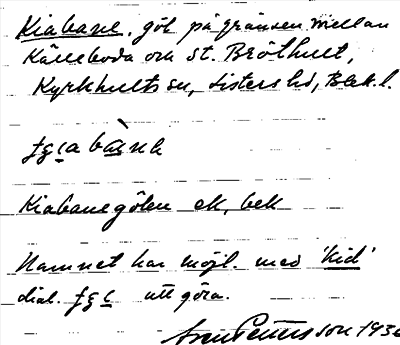 Kiabane, göl på gränsen mellan
Kålleboda och St. Bröthult,
Kyrkhults sn, Listers hd, Blek. l.
Kiabanegölen ek, bek
Namnet har möjl. med 'kid'
dial. att göra.
Pettersson 1936